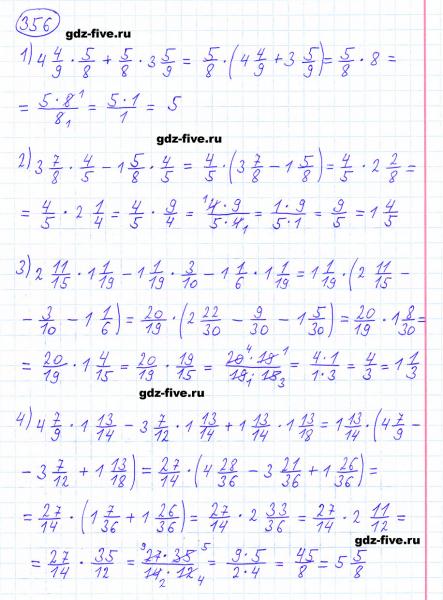 356
gdz-five.ru
1) 4 4/9 · 5/8 + 5/8 · 3 5/9 = 5/8 · (4 4/9 + 3 5/9) = 5/8 · 8 =
= 5·8¹/8₁ = 5·1/1 = 5
gdz-five.ru
2) 3 7/8 · 4/5 − 1 5/8 · 4/5 = 4/5 · (3 7/8 − 1 5/8) = 4/5 · 2 2/8 =
= 4/5 · 2 1/4 = 4/5 · 9/4 = ¹4·9/5·4₁ = 1·9/5·1 = 9/5 = 1 4/5
3) 2 11/15 · 1 1/19 − 1 1/19 · 3/10 − 1 1/6 · 1 1/19 = 1 1/19 · (2 11/15 −
− 3/10 − 1 1/6) = 20/19 · (2 22/30 − 9/30 − 1 5/30) = 20/19 · 1 8/30 =
= 20/19 · 1 4/15 = 20/19 · 19/15 = 20⁴·19¹/19₁·15₃ = 4·1/1·3 = 4/3 = 1 1/3
gdz-five.ru
4) 4 7/9 · 1 13/14 − 3 7/12 · 1 13/14 + 1 13/14 · 1 13/18 = 1 13/14 · (4 7/9 −
− 3 7/12 + 1 13/18) = 27/14 · (4 28/36 − 3 21/36 + 1 26/36) =
= 27/14 · (1 7/36 + 1 26/36) = 27/14 · 2 33/36 = 27/14 · 2 11/12 =
= 27/14 · 35/12 = ⁹27·35⁵/14₂·12₄ = 9·5/2·4 = 45/8 = 5 5/8
gdz-five.ru